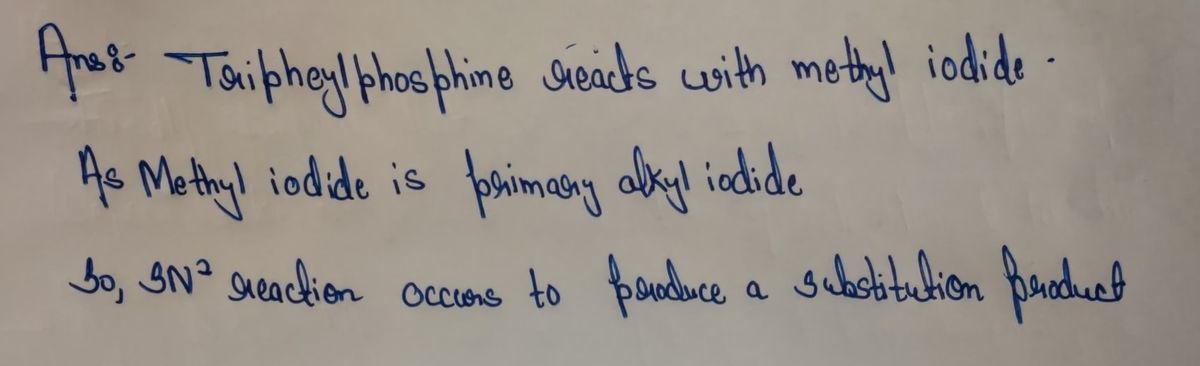 Ans:- Tripheylphosphine reacts with methyl iodide.
As Methyl iodide is primary alkyl iodide
So, SN² reaction occurs to produce a substitution product